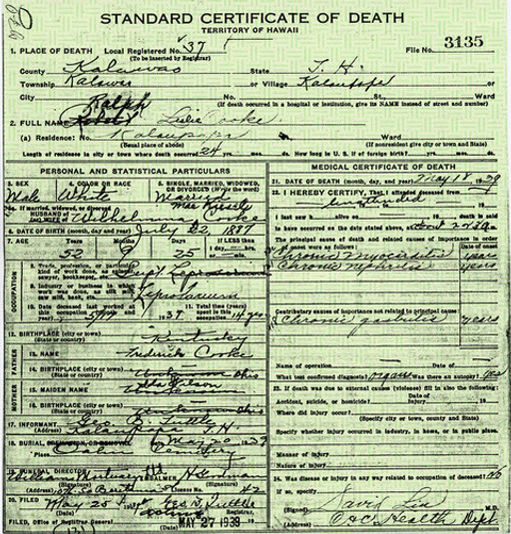 STANDARD CERTIFICATE OF DEATH
TERRITORY OF HAWAII
1. PLACE OF DEATH Local Registered No. 37 File No. 3135
(To be inserted by Registrar)
County Kalawao State T. H.
Township Kalawao or Village Kalaupapa or
City No. St. Ward
(If death occurred in a hospital or institution, give its NAME instead of street and number)
Ralph
2. FULL NAME Cooke
(a) Residence: No. Kalaupapa Ward
(Usual place of abode) (If nonresident give city or town and State)
Length of residence in city or town where death occurred 24 yrs. mos. ds. How long in U. S. if of foreign birth? yrs. mos. ds.
PERSONAL AND STATISTICAL PARTICULARS
3. SEX 4. COLOR OR RACE 5. SINGLE, MARRIED, WIDOWED, OR DIVORCED (Write the word)
Male White Married
5a. If married, widowed, or divorced
HUSBAND of
(or) WIFE of Wilhelmina Cooke
6. DATE OF BIRTH (month, day, and year) July 22, 1887
7. AGE Years Months Days If LESS than
52 25 1 day hrs.
or min.
OCCUPATION
8. Trade, profession, or particular kind of work done, as spinner, sawyer, bookkeeper, etc. Supt. Leprosarium
9. Industry or business in which work was done, as silk mill, saw mill, bank, etc. Leprosarium
10. Date deceased last worked at this occupation (month and year) 11. Total time (years) spent in this occupation 14 yrs
12. BIRTHPLACE (city or town)
(State or country) Kentucky
FATHER
13. NAME Frederick Cooke
14. BIRTHPLACE (city or town)
(State or country) Ohio
MOTHER
15. MAIDEN NAME
16. BIRTHPLACE (city or town)
(State or country) Ohio
17. INFORMANT Geo. B. Tuttle
(Address) Kalaupapa T.H.
18. BURIAL, CREMATION, OR REMOVAL
Place Oahu Cemetery May 20, 1939
19. FUNERAL DIRECTOR EMBALMER
Williams Mortuary Ltd
(Signature)
(Address) License No. 42
20. FILED May 25, 1939 Geo B Tuttle
Registrar.
FILED, Office of Registrar General MAY 27 1939, 19
MEDICAL CERTIFICATE OF DEATH
21. DATE OF DEATH (month, day, and year) May 18, 1939
22. I HEREBY CERTIFY, That I attended deceased from
unattended
I last saw h alive on death is said
to have occurred on the date stated above, at about
The principal cause of death and related causes of importance in order of onset were as follows: Date of onset
Chronic Myocarditis years
Chronic nephritis years
Contributory causes of importance not related to principal cause:
Chronic gastritis years
Name of operation Date of
What test confirmed diagnosis? organs Was there an autopsy? Yes
23. If death was due to external causes (violence) fill in also the following:
Accident, suicide, or homicide? Date of Injury 19
Where did injury occur?
(Specify city or town, county, and State)
Specify whether injury occurred in industry, in home, or in public place.
Manner of injury
Nature of injury
24. Was disease or injury in any way related to occupation of deceased? No
If so, specify
(Signature) David M.D.
(Address) Health Dept.